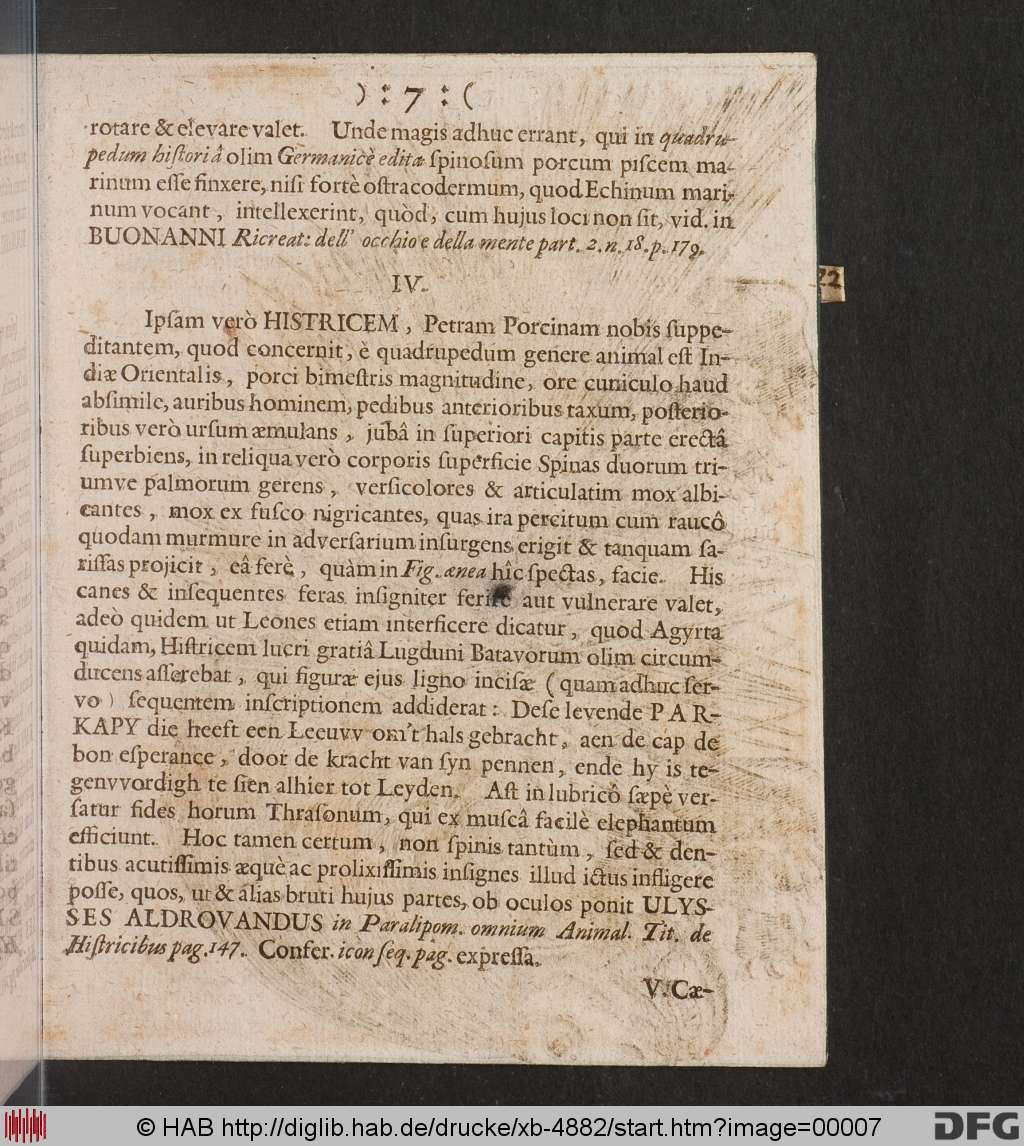 ) : 7 : (
rotare & elevare valet. Unde magis adhuc errant, qui in quadru-
pedum hiſtoriâ olim Germanicè editæ ſpinoſum porcum piſcem ma-
rinum eſſe finxere, niſi fortè oſtracodermum, quod Echinum mari-
num vocant, intellexerint, quòd, cum hujus loci non ſit, vid. in
BUONANNI Ricreat: dell' occhio e della mente part. 2. n. 18. p. 179.
IV.
Ipſam verò HISTRICEM, Petram Porcinam nobis ſuppe-
ditantem, quod concernit, è quadrupedum genere animal eſt In-
diæ Orientalis, porci bimeſtris magnitudine, ore cuniculo haud
abſimile, auribus hominem, pedibus anterioribus taxum, poſterio-
ribus verò urſum æmulans, jubâ in ſuperiori capitis parte erectâ
ſuperbiens, in reliqua verò corporis ſuperficie Spinas duorum tri-
umve palmorum gerens, verſicolores & articulatim mox albi-
cantes, mox ex fuſco nigricantes, quas ira percitum cum raucô
quodam murmure in adverſarium inſurgens erigit & tanquam ſa-
riſſas projicit, eâ ferè, quàm in Fig. ænea hîc ſpectas, facie. His
canes & inſequentes feras inſigniter ferire aut vulnerare valet,
adeò quidem ut Leones etiam interficere dicatur, quod Agyrta
quidam, Hiſtricem lucri gratiâ Lugduni Batavorum olim circum-
ducens aſſerebat, qui figuræ ejus ligno inciſæ (quam adhuc ſer-
vo) ſequentem inſcriptionem addiderat: Deſe levende PAR-
KAPY die heeft een Leeuvv om't hals gebracht, aen de cap de
bon eſperance, door de kracht van ſyn pennen, ende hy is te-
genvvordigh te ſien alhier tot Leyden. Aſt in lubricô ſæpè ver-
ſatur fides horum Thraſonum, qui ex muſcâ facilè elephantum
efficiunt. Hoc tamen certum, non ſpinis tantùm, ſed & den-
tibus acutiſſimis æquè ac prolixiſſimis inſignes illud ictus infligere
poſſe, quos, ut & alias bruti hujus partes, ob oculos ponit ULYS-
SES ALDROVANDUS in Paralipom. omnium Animal. Tit. de
Hiſtricibus pag. 147. Confer. icon ſeq. pag. expreſſa.
V. Cæ-
22
© HAB http://diglib.hab.de/drucke/xb-4882/start.htm?image=00007
DFG